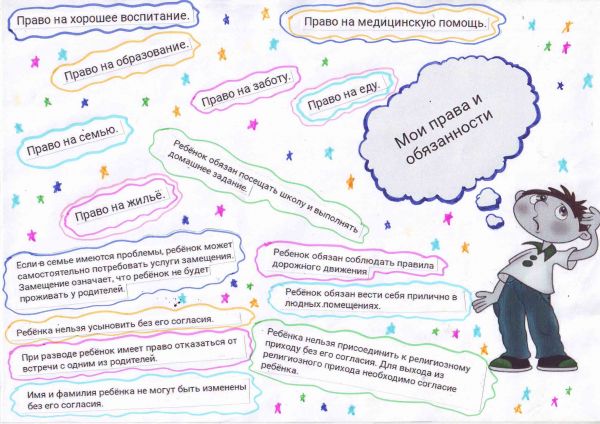 Право на хорошее воспитание.
Право на медицинскую помощь.
Право на образование.
Право на заботу.
Право на еду.
Мои права и
обязанности
Право на семью.
Ребёнок обязан посещать школу и выполнять
домашнее задание.
Право на жильё.
Если в семье имеются проблемы, ребёнок может
самостоятельно потребовать услуги замещения.
Замещение означает, что ребёнок не будет
проживать у родителей.
Ребенок обязан соблюдать правила
дорожного движения
Ребёнок обязан вести себя прилично в
людных помещениях.
Ребёнка нельзя усыновить без его согласия.
При разводе ребёнок имеет право отказаться от
встречи с одним из родителей.
Имя и фамилия ребёнка не могут быть изменены
без его согласия.
Ребёнка нельзя присоединить к религиозному
приходу без его согласия. Для выхода из
религиозного прихода необходимо согласие
ребёнка.